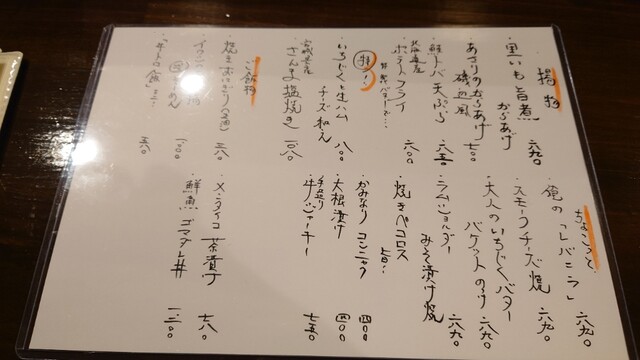 揚物
・里いも旨煮
からあげ 六九〇
・あさりのからあげ
磯辺風 七〇〇
・鮭トバ天ぷら 六五〇
北海道産
・ポテトフライ 六〇〇
・いちじくと生ハム
チーズ和え 八〇〇
宮城県産
・さんま塩焼き 一〇八〇
ご飯物
・焼きおにぎり 六三八〇
ちょこっと
・俺の「レバニラ」 六九〇
・スモークチーズ焼 六九〇
・大人のいちじくバター
バゲットのけ 六八〇
・ラムショルダー
みそ漬け焼 六九〇
・焼きペコロス
・かみなりコンニャク 四〇〇
・大根漬け 四〇〇
手造り
・牛ジャーキー 七五〇
・メンタイコ茶漬け 七八〇
・鮮魚ゴマダレ丼 一二〇〇